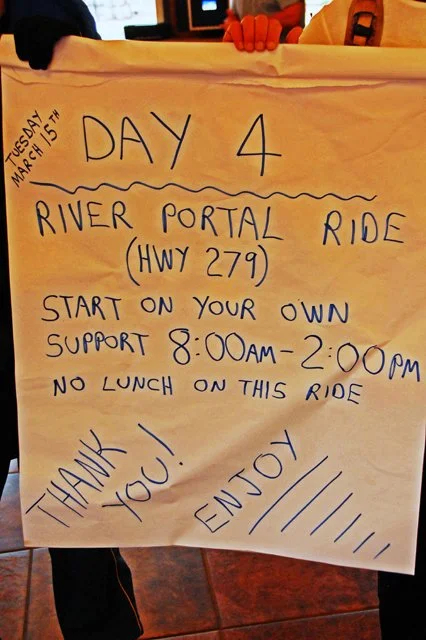 TUESDAY
MARCH 15TH
DAY 4
RIVER PORTAL RIDE
(HWY 279)
START ON YOUR OWN
SUPPORT 8:00AM - 2:00PM
NO LUNCH ON THIS RIDE
THANK
YOU!
ENJOY